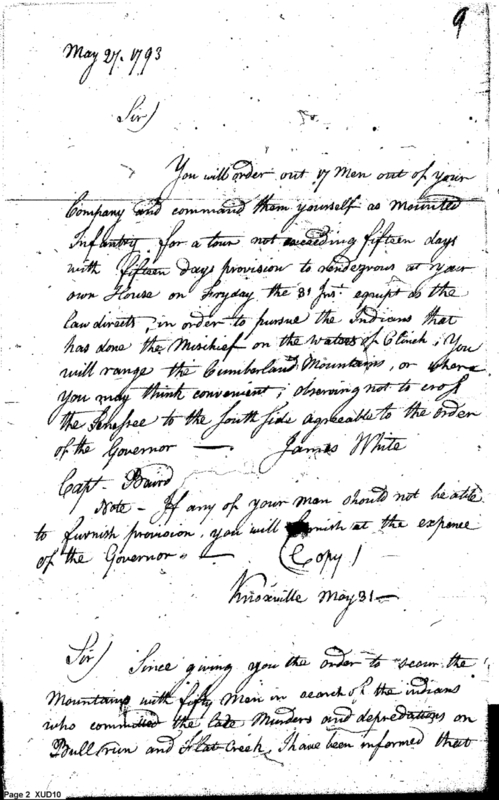 9
May 27. 1793
Sir)
You will order out 17 Men out of your
Company and command them yourself as mounted
Infantry for a tour not exceeding fifteen days
with fifteen days provision to rendezvous at your
own House on Fryday the 31 Inst. equipt as the
law directs, in order to pursue the Indians that
has done the Mischief on the waters of Clinch; You
will range the Cumberland Mountains, or where
you may think convenient; observing not to cross
the Tenesee to the South Side agreeable to the order
of the Governor — James White
Capt. Baird
Note - If any of your men should not be able
to furnish provision, you will furnish at the expence
of the Governor. —
(Copy)
Knoxville May 31 —
Sir) Since giving you the order to scour the
Mountains with fifty Men in search of the indians
who committed the late Murders and depredations on
Bull run and Flat Creek, I have been informed that
Page 2 XUD10